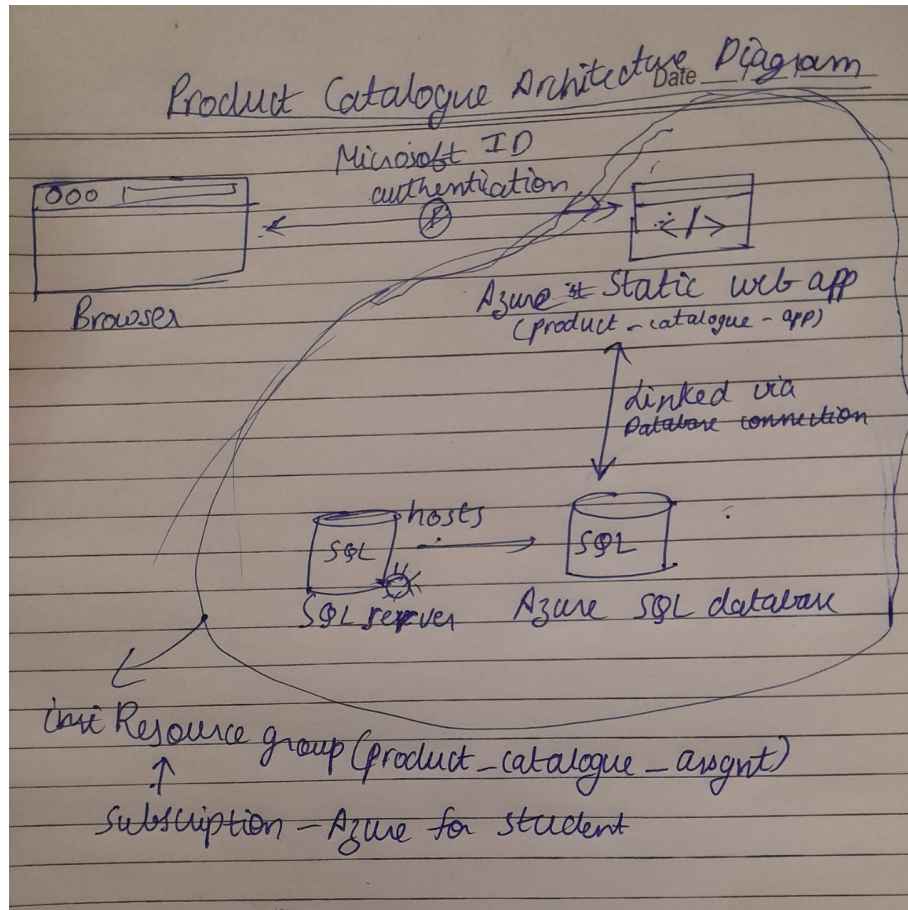 Date
Product Catalogue Architecture Diagram
Microsoft ID
authentication
</>
Browser
Azure Static web app
(product_catalogue_app)
Linked via
Database connection
hosts
SQL
SQL
SQL server
Azure SQL database
Resource group (product_catalogue_assgnt)
Subscription - Azure for student